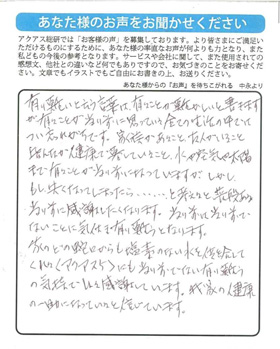 あなた様のお声をお聞かせください
アクアス総研では「お客様の声」を募集しております。より皆さまにご満足い
ただけるものにするために、あなた様の率直なお声が何よりも力となり、また
私どもの今後の参考となります。サービスや会社に関して、また使用されての
感想文、他社との違いなど何でもありですので、お気づきのことをお寄せくださ
い。文章でもイラストでもご自由にお書きの上、お送りください。
あなた様からの『お声』を待ちこがれる 中永より
有り難いという言葉は、有ることが難かしいと書きます
が有ることが当り前に思っている今の生活の中にどっぷり
家族があること友人がいること
皆んなが健康で暮していること、水や空気や太陽
まで有ることが当り前になっていますが しかし
もし失くなってしまったら・・・・・・と考えると普段の
当り前に感謝したくなります。当り前は当り前で
ないことに気付き有り難うとなります。
家のどの蛇口からも塩素のない水を供給して
くれる〈アクアス〉にも当り前でない有り難う
の気持で日々感謝しています。我が家の健康
の一助になっていると信じています。